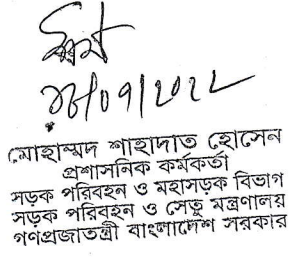 ২৮/০৭/২০২২
মোহাম্মদ শাহাদাত হোসেন
প্রশাসনিক কর্মকর্তা
সড়ক পরিবহন ও মহাসড়ক বিভাগ
সড়ক পরিবহন ও সেতু মন্ত্রণালয়
গণপ্রজাতন্ত্রী বাংলাদেশ সরকার